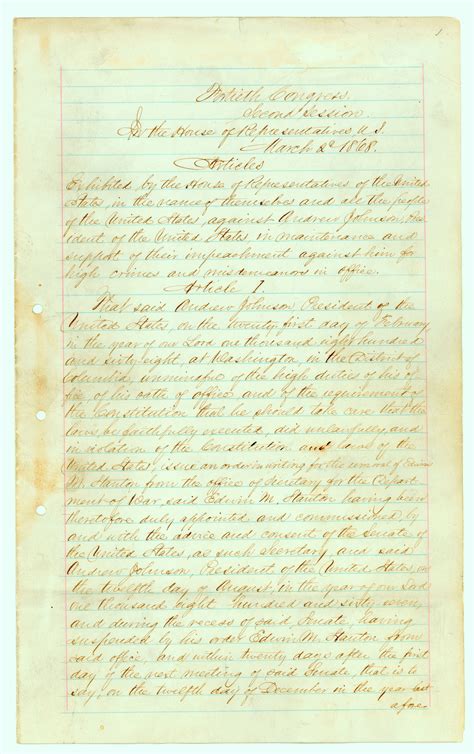 1
Fortieth Congress
Second Session.
In the House of Representatives, U.S.
March 2d 1868.
Articles
Exhibited by the House of Representatives of the United
States, in the name of themselves and all the people
of the United States, against Andrew Johnson, Pres
ident of the United States in maintenance and
support of their impeachment against him for
high crimes and misdemeanors in office.
Article I.
That said Andrew Johnson President of the
United States, on the twenty first day of February,
in the year of our Lord one thousand eight hundred
and sixty eight, at Washington, in the District of
Columbia, unmindful of the high duties of his of
fice, of his oath of office and of the requirement of
the Constitution that he should take care that the
laws be faithfully executed, did unlawfully, and
in violation of the Constitution and laws of the
United States, issue an order in writing for the removal of Edwin
M. Stanton from the office of Secretary for the Depart
ment of War, said Edwin M. Stanton having been
theretofore duly appointed and commissioned, by
and with the advice and consent of the Senate of
the United States, as such Secretary, and said
Andrew Johnson, President of the United States, on
the twelfth day of August, in the year of our Lord
one thousand eight hundred and sixty seven,
and during the recess of said Senate, having
suspended by his order Edwin M. Stanton from
said office, and within twenty days after the first
day of the next meeting of said Senate, that is to
say, on the twelfth day of December in the year last
afore